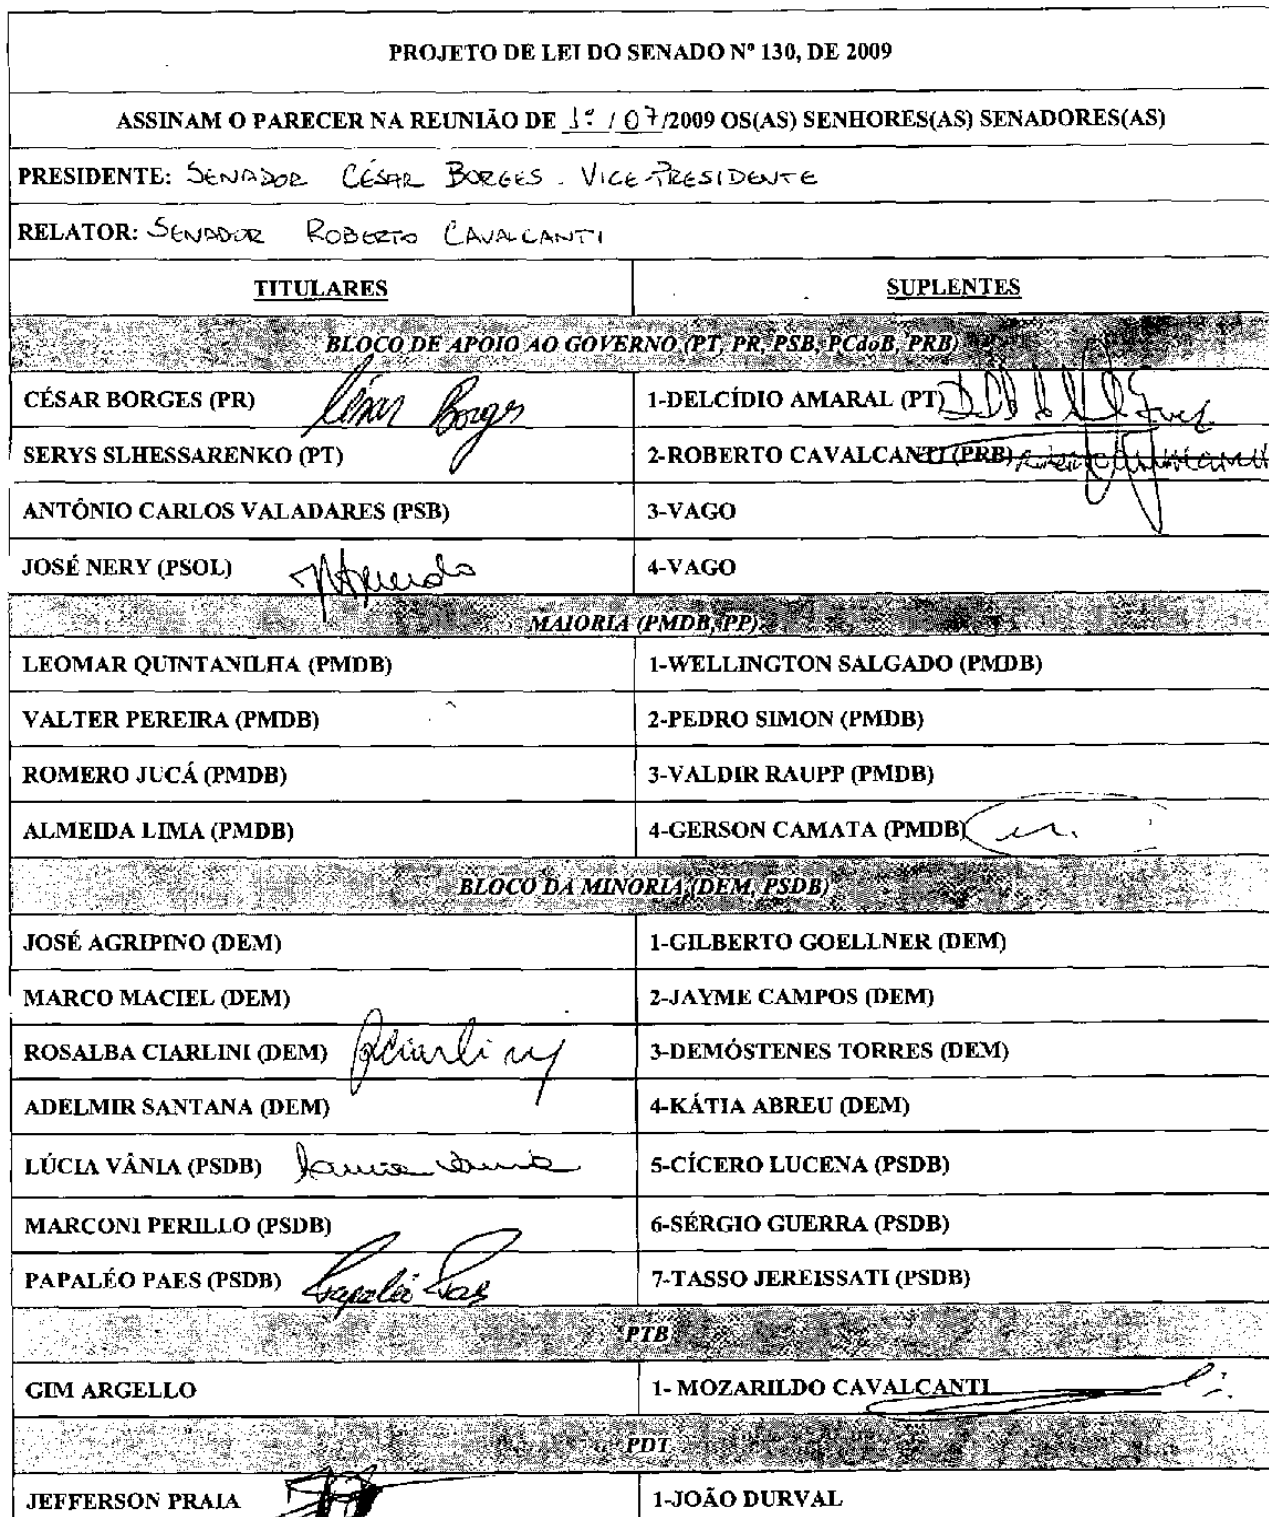 PROJETO DE LEI DO SENADO Nº 130, DE 2009
ASSINAM O PARECER NA REUNIÃO DE 1º / 07/2009 OS(AS) SENHORES(AS) SENADORES(AS)
PRESIDENTE: SENADOR CÉSAR BORGES - VICE-PRESIDENTE
RELATOR: SENADOR ROBERTO CAVALCANTI
TITULARES SUPLENTES
BLOCO DE APOIO AO GOVERNO (PT, PR, PSB, PCdoB, PRB)
CÉSAR BORGES (PR) César Borges 1-DELCÍDIO AMARAL (PT)
SERYS SLHESSARENKO (PT) 2-ROBERTO CAVALCANTI (PRB)
ANTÔNIO CARLOS VALADARES (PSB) 3-VAGO
JOSÉ NERY (PSOL) 4-VAGO
MAIORIA (PMDB, PP)
LEOMAR QUINTANILHA (PMDB) 1-WELLINGTON SALGADO (PMDB)
VALTER PEREIRA (PMDB) 2-PEDRO SIMON (PMDB)
ROMERO JUCÁ (PMDB) 3-VALDIR RAUPP (PMDB)
ALMEIDA LIMA (PMDB) 4-GERSON CAMATA (PMDB)
BLOCO DA MINORIA (DEM, PSDB)
JOSÉ AGRIPINO (DEM) 1-GILBERTO GOELLNER (DEM)
MARCO MACIEL (DEM) 2-JAYME CAMPOS (DEM)
ROSALBA CIARLINI (DEM) RCiarlini 3-DEMÓSTENES TORRES (DEM)
ADELMIR SANTANA (DEM) 4-KÁTIA ABREU (DEM)
LÚCIA VÂNIA (PSDB) Lucia Vania 5-CÍCERO LUCENA (PSDB)
MARCONI PERILLO (PSDB) 6-SÉRGIO GUERRA (PSDB)
PAPALÉO PAES (PSDB) Papaléo Paes 7-TASSO JEREISSATI (PSDB)
PTB
GIM ARGELLO 1- MOZARILDO CAVALCANTI
PDT
JEFFERSON PRAIA 1-JOÃO DURVAL